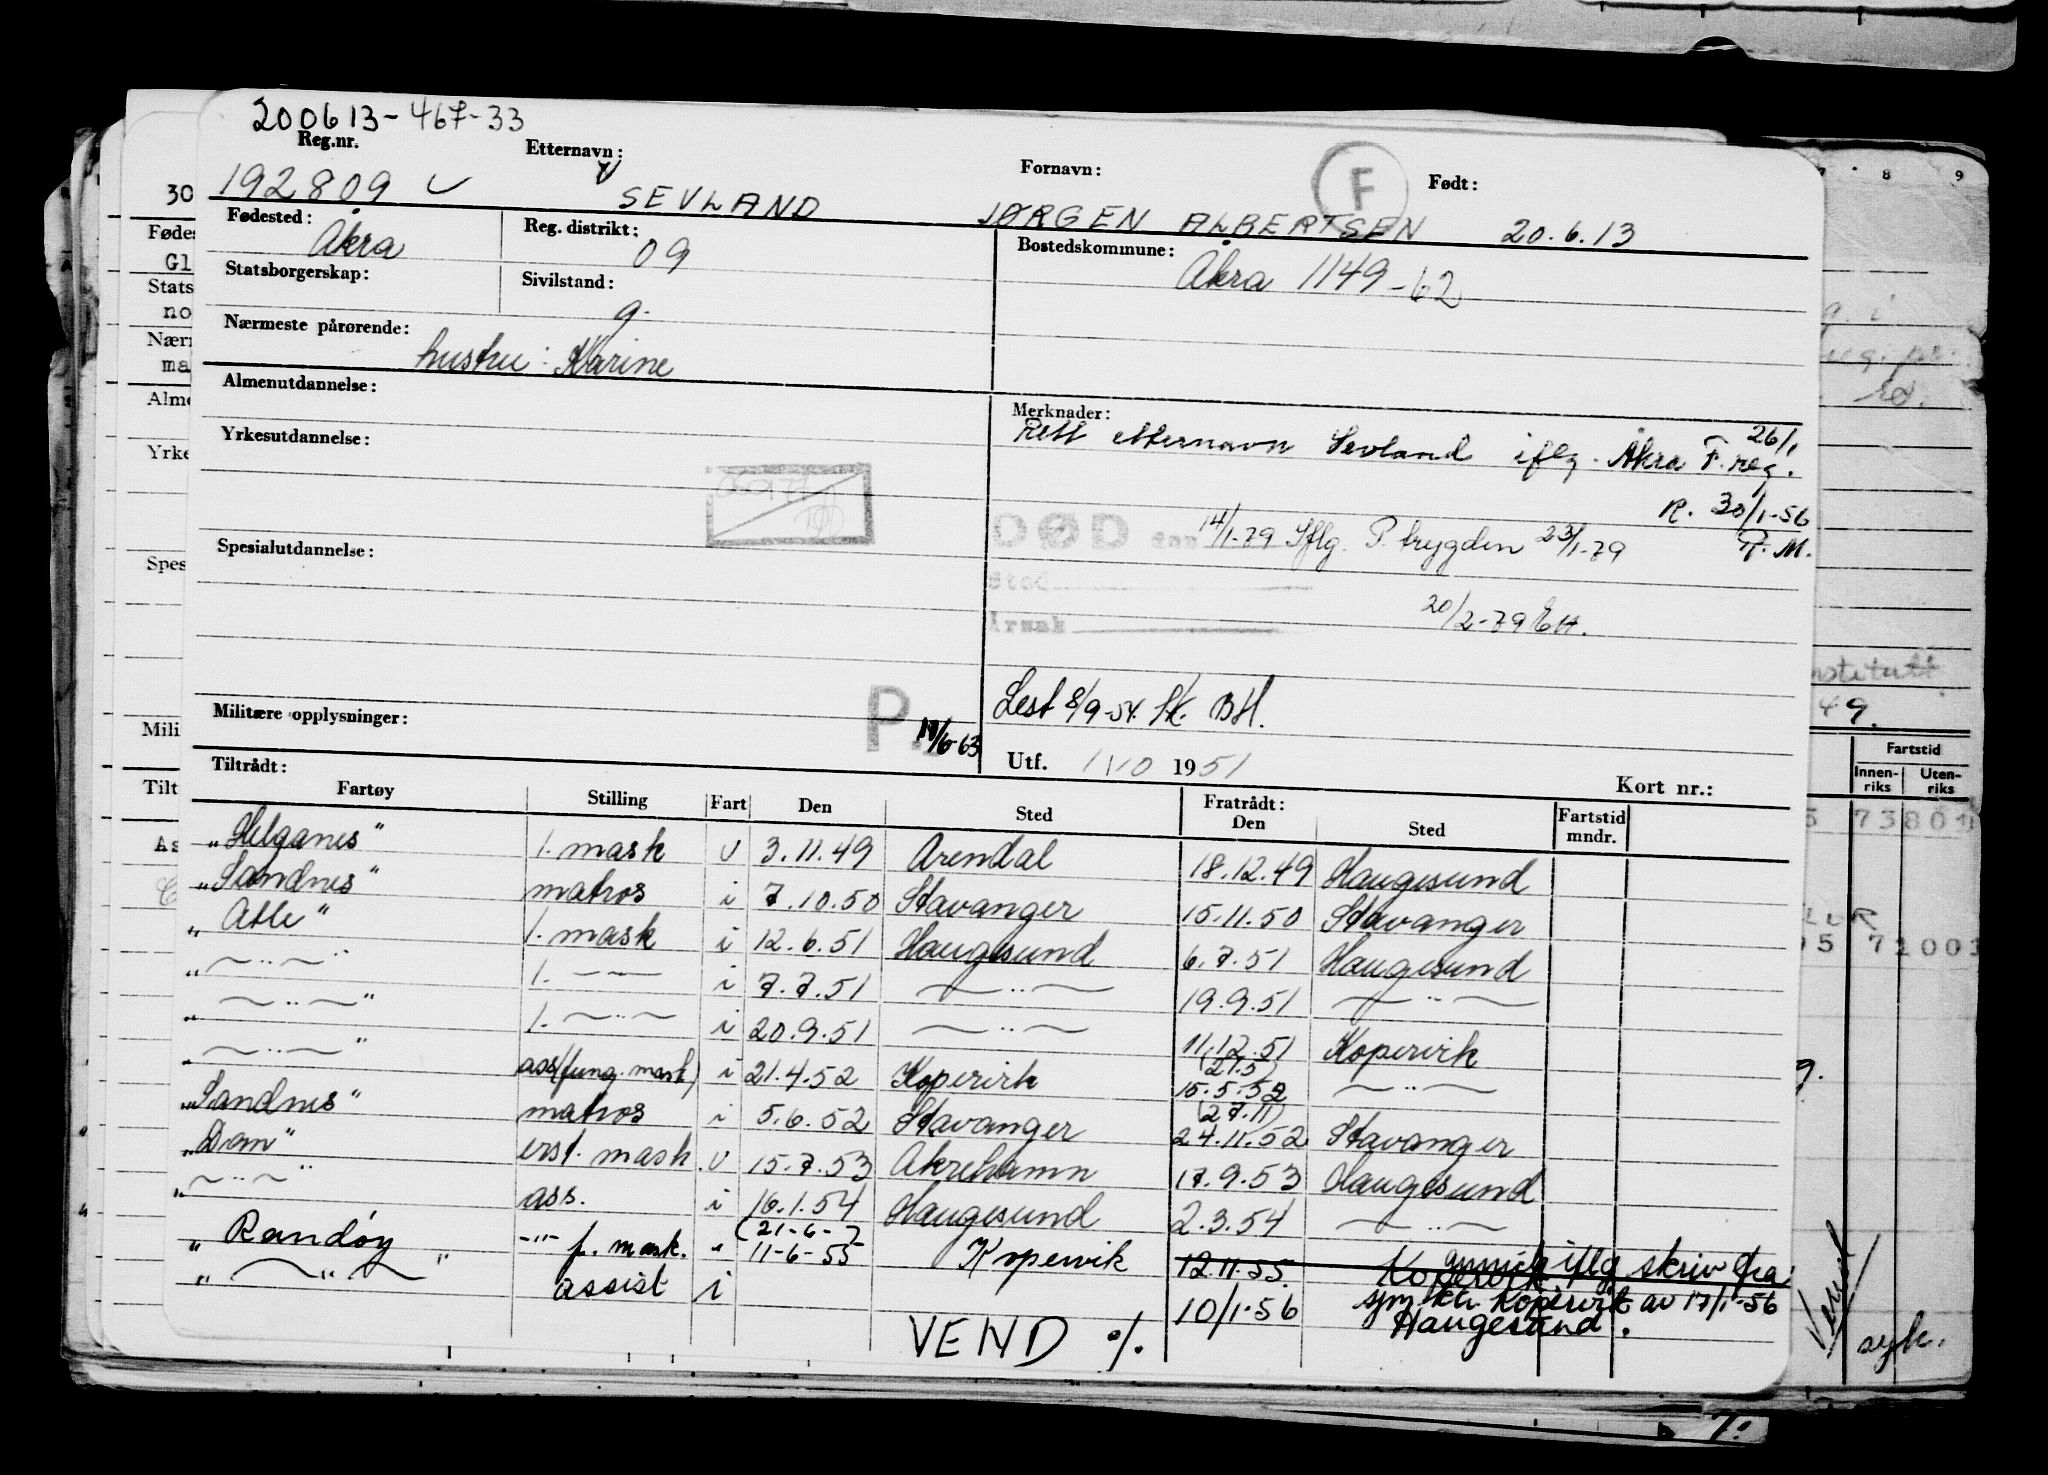 200613-467-33
Reg.nr. Etternavn: Fornavn: F Født:
192809 SEVLAND JØRGEN ALBERTSEN 20.6.13
Fødested: Åkra Reg. distrikt: 09 Bostedskommune: Åkra 1149-62
Statsborgerskap: Sivilstand: g.
Nærmeste pårørende: hustru: Karine
Almenutdannelse:
Merknader:
Rett etternavn Sevland iflg. Åkra F.reg. 26/1
Yrkesutdannelse:
R. 30/1-56
R.M.
DØD den 14/1-79 Iflg. P.trygden 23/1-79
Spesialutdannelse:
Sted
Årsak
20/2-79 EH.
Lest 8/9-54. Sk. BH.
Militære opplysninger: P. 19/6-63
Utf. 1/10 1951
Tiltrådt: Kort nr.:
Fartøy Stilling Fart Den Sted Fratrådt: Den Sted Fartstid mndr.
"Helganes" 1. mask u 3.11.49 Arendal 18.12.49 Haugesund
"Sandnes" matros i 7.10.50 Stavanger 15.11.50 Stavanger
"Atle" 1. mask i 12.6.51 Haugesund 6.7.51 Haugesund
" ~ .. ~ " 1. ~ ~ i 7.7.51 ~ .. ~ 19.9.51 ~ .. ~
" ~ .. ~ " 1. ~ .. ~ i 20.9.51 ~ .. ~ 11.12.51 Kopervik
" ~ .. ~ " ass (fung. mask) i 21.4.52 Kopervik (21.5) 15.5.52 ~ .. ~
"Sandnes" matros i 5.6.52 Stavanger (27.11) 24.11.52 Stavanger
"Dan" erst. mask. u 15.7.53 Åkrehamn 17.9.53 Haugesund
" ~ .. ~ " ass. i 16.1.54 Haugesund 2.3.54 ~ .. ~
"Randöy" -"- f. mask. " (21-6-) 11-6-55 Kopervik 12.11.55 Kopervik iflg. skriv fra
" ~ " ~ " assist i 10/1-56 sjm.ktr. Kopervik av 17/1-56
Haugesund.
VEND %.
30
Fødes
Gl
Stats
no
Nærn
ma
Alme
Yrke
Spes
Mili
Tilt
As
8 9
49.
Fartstid
Innen-riks Uten-riks
syk.